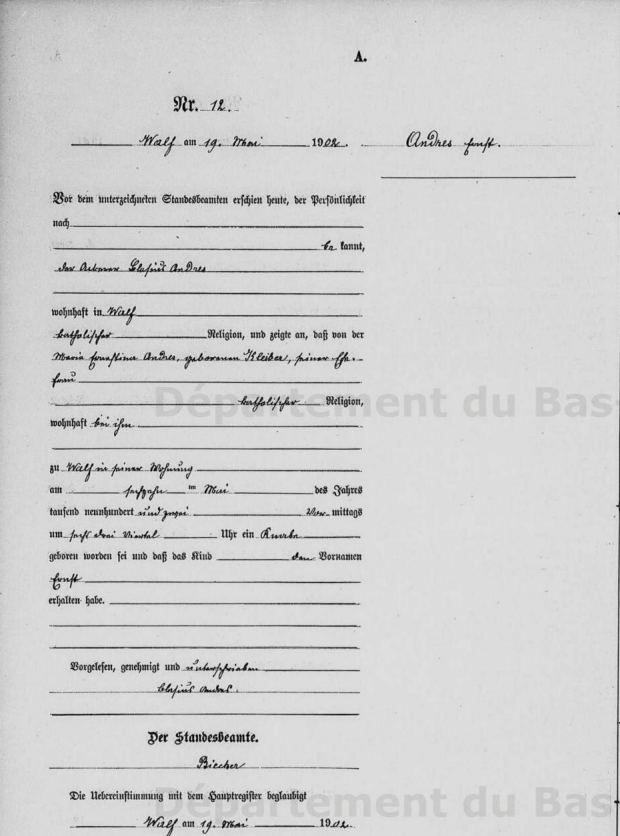 A.
Nr. 12.
Walf am 19. Mai 1902.
Andres Ernst.
Vor dem unterzeichneten Standesbeamten erschien heute, der Persönlichkeit
nach
be kannt,
der Ackerer Blasius Andres
wohnhaft in Walf
katholischer Religion, und zeigte an, daß von der
Maria Ernestina Andres, geborenen Kleiber, seiner Ehe-
frau
katholischer Religion,
wohnhaft bei ihm
zu Walf in seiner Wohnung
am sechzehn ten Mai des Jahres
tausend neunhundert und zwei Vor mittags
um sechs drei Viertel Uhr ein Knabe
geboren worden sei und daß das Kind den Vornamen
Ernst
erhalten habe.
Vorgelesen, genehmigt und unterschrieben
Blasius Andres.
Der Standesbeamte.
Biecher
Die Uebereinstimmung mit dem Hauptregister beglaubigt
Walf am 19. Mai 1902.
Département du Bas-
Département du Bas-